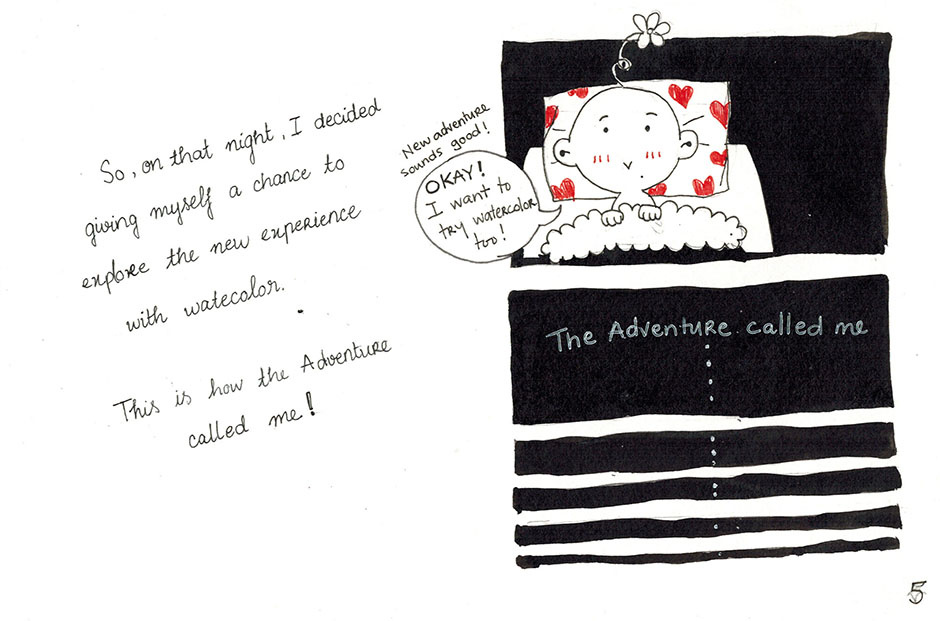 So, on that night, I decided
giving myself a chance to
explore the new experience
with watecolor.
This is how the Adventure
called me!
New adventure
sounds good!
OKAY!
I want to
try watercolor
too!
The Adventure called me
5